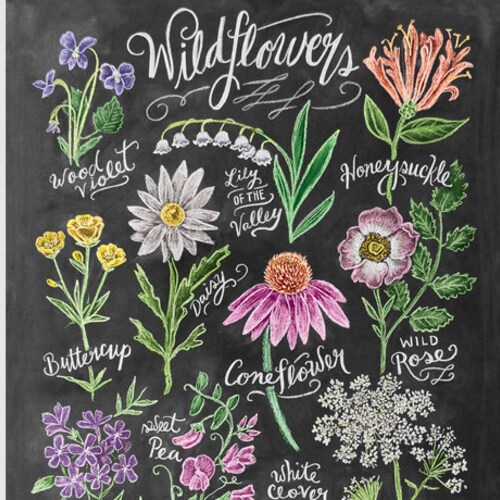 Wildflowers
Wood
Violet
Lily
OF THE
Valley
Honeysuckle
Daisy
Buttercup
Coneflower
WILD
Rose
Sweet
Pea
White
Clover